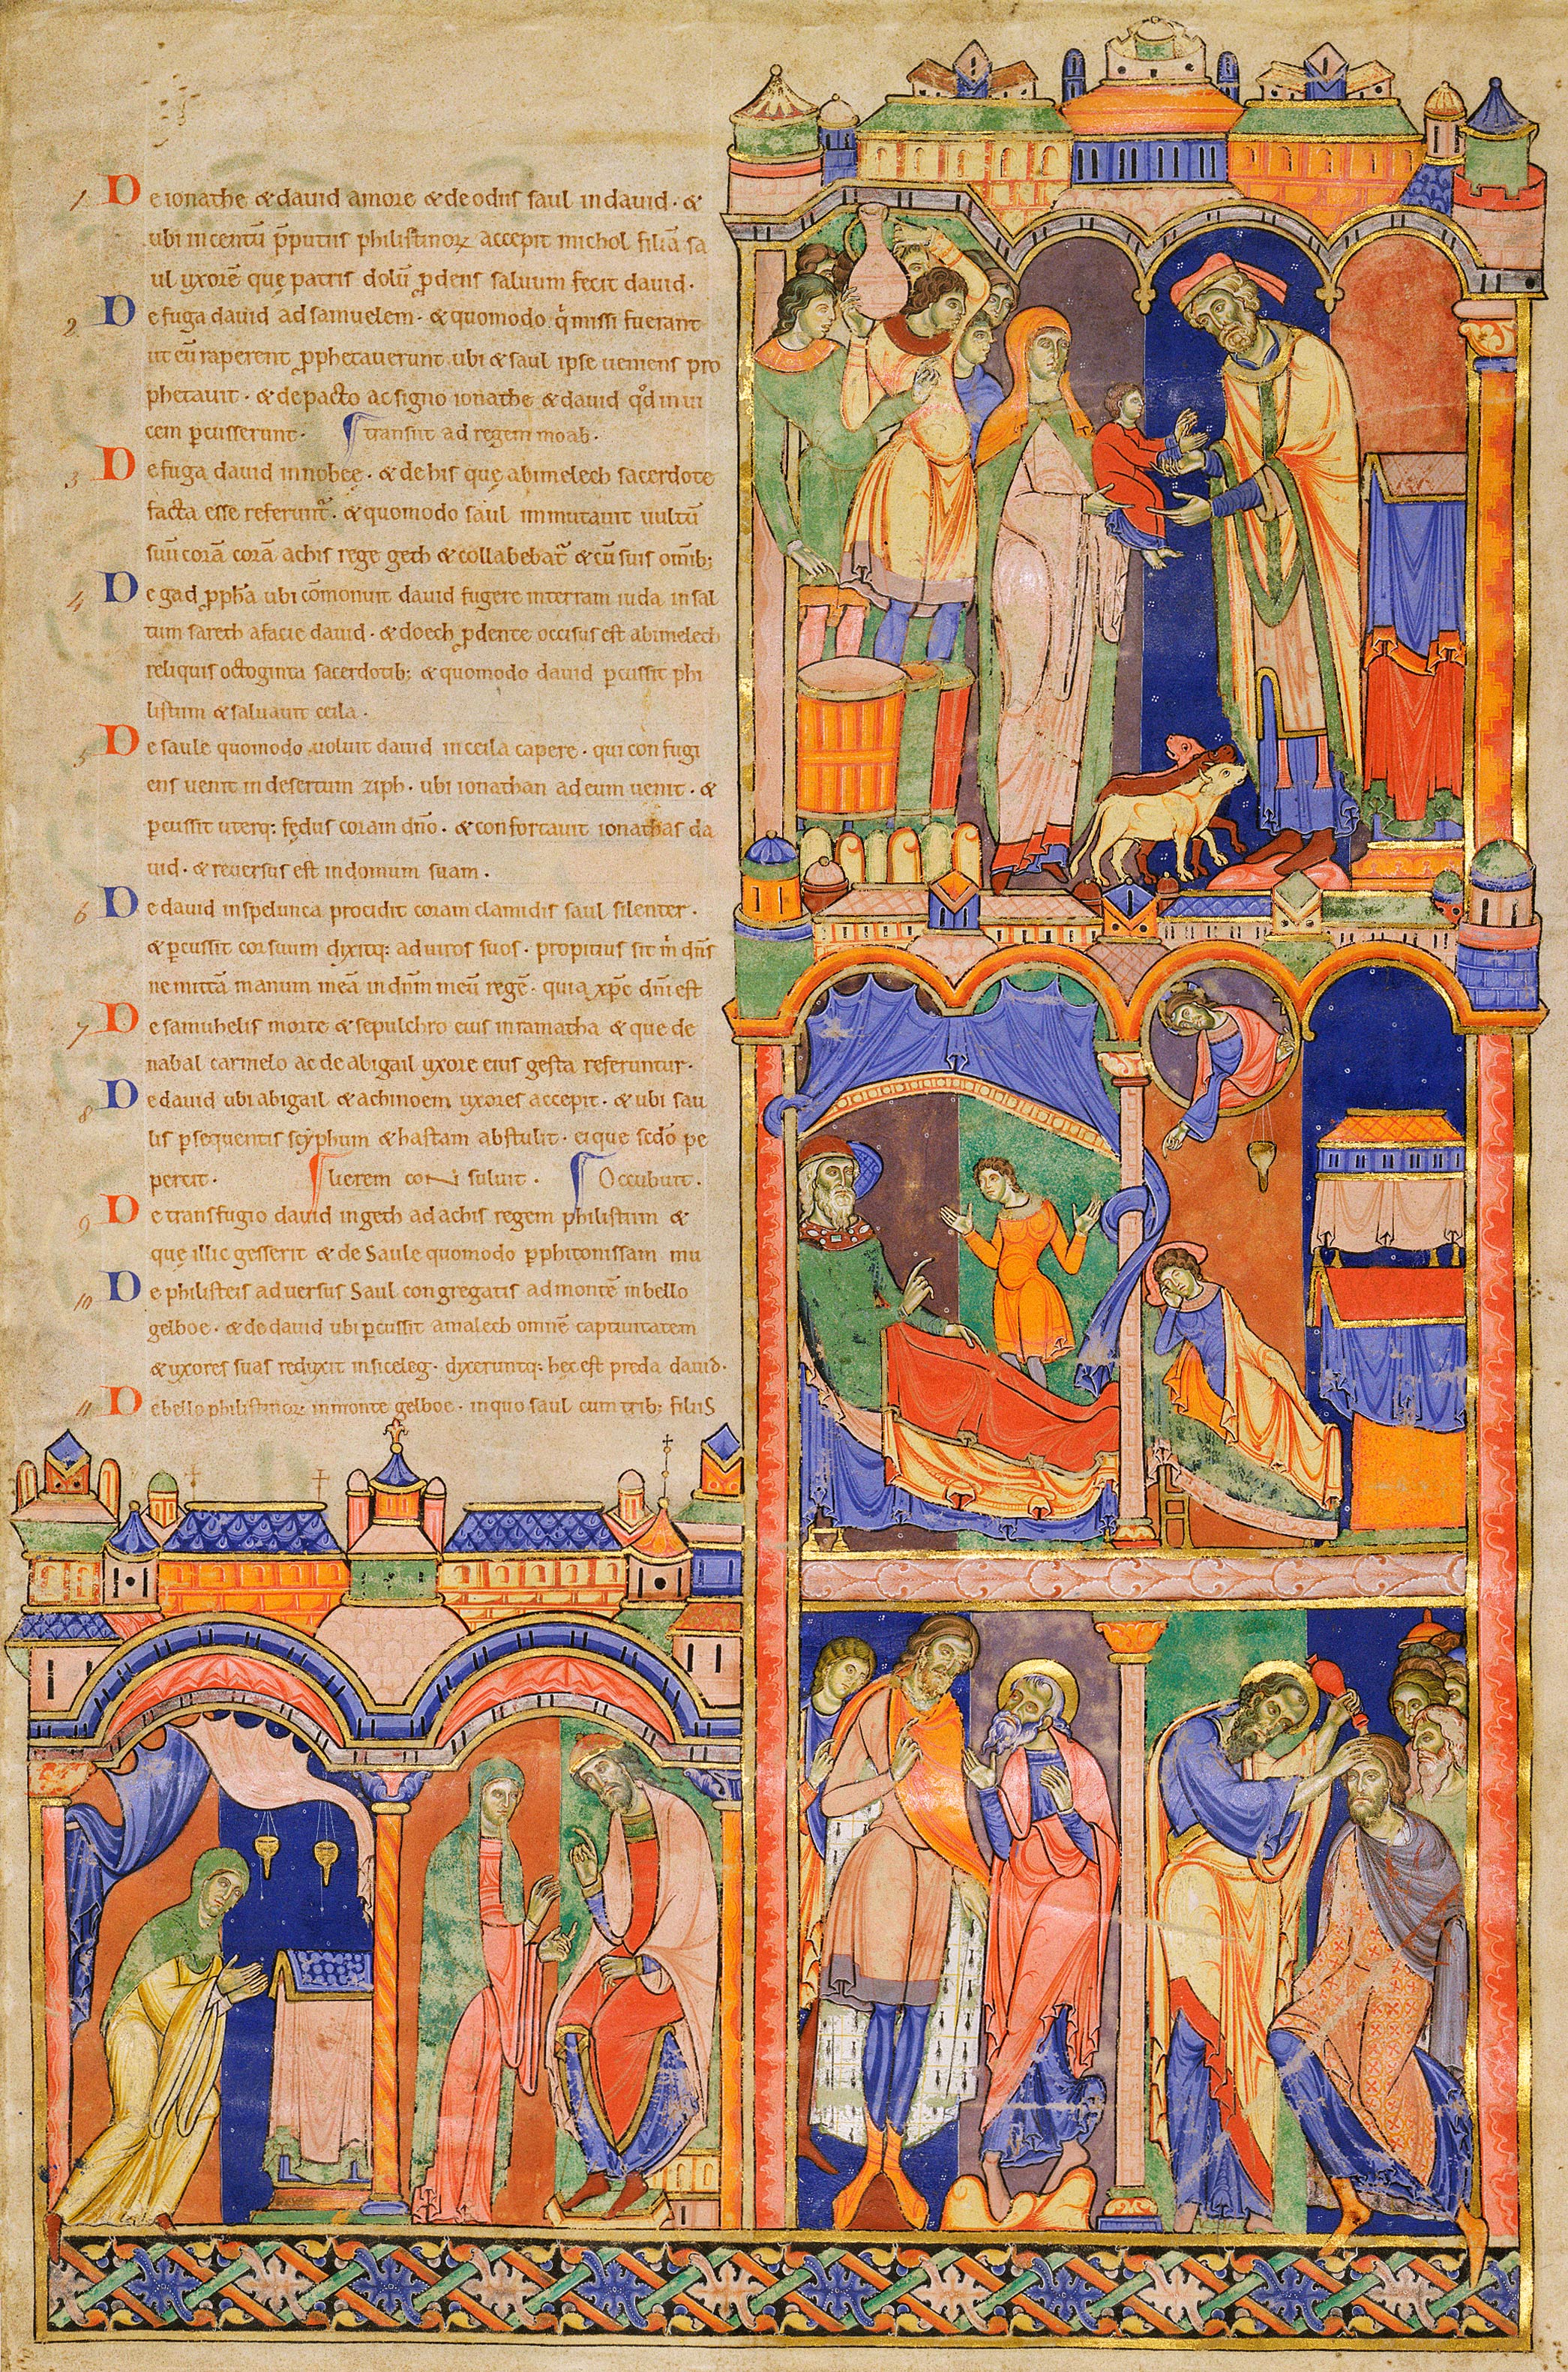 1 De ionathe & dauid amore & de odiis saul in dauid · &
ubi in centū p̄putiis philistinoꝝ accepit michol filiā sa
ul uxorē quę patris dolū ꝓdens saluum fecit dauid ·
2 De fuga dauid ad samuelem · & quomodo q̇ missi fuerant
ut eū raperent ꝓphetauerunt ubi & saul ipse ueniens pro
phetauit · & de pacto ac signo ionathe & dauid qd̊ inui
cem ꝑcusserunt · transiit ad regem moab ·
3 De fuga dauid in nobeę · & de his quę abimelech sacerdote
facta esse referunt᷑ · & quomodo saul immutauit uultū
suū corā corā achis rege geth & collabebat᷑ & cū suis omīb;
4 De gad ꝓph̄a ubi cōmonuit dauid fugere in terram iuda in sal
tum sareth a facie dauid · & doech ꝓdente occisus est abimelech
reliquis octoginta sacerdotib; & quomodo dauid ꝑcussit phi
listiim & saluauit ceila ·
5 De saule quomodo uoluit dauid in ceila capere · qui confugi
ens uenit in desertum ziph · ubi ionathan ad eum uenit · &
ꝑcussit uterq: fędus coram dn̄o · & confortauit ionathas da
uid · & reuersus est in domum suam ·
6 De dauid in spelunca procidit coram clamidis saul silenter ·
& ꝑcussit cor suum dixitq: ad uiros suos · propitius sit m̄ dn̄s
ne mittā manum meā in dn̄m meū regē · quia xp̄c dn̄i est
7 De samuhelis morte & sepulchro eius in ramatha & que de
nabal carmelo ac de abigail uxore eius gesta referuntur ·
8 De dauid ubi abigail & achinoem uxores accepit · & ubi sau
lis ꝑsequentis scyphum & hastam abstulit · eique scd̄o pe
percit · lierem consuluit · Occubuit ·
9 De transfugio dauid in geth ad achis regem philistiim &
quę illic gesserit & de Saule quomodo ꝑ phitonissam mu
10 De philisteis aduersus Saul congregatis ad montē in bello
gelboe · & de dauid ubi ꝑcussit amalech omnē captiuitatem
& uxores suas reduxit in siceleg · dixeruntq: hec est preda dauid ·
11 De bello philistinoꝝ in monte gelboe · in quo saul cum trib; filiis